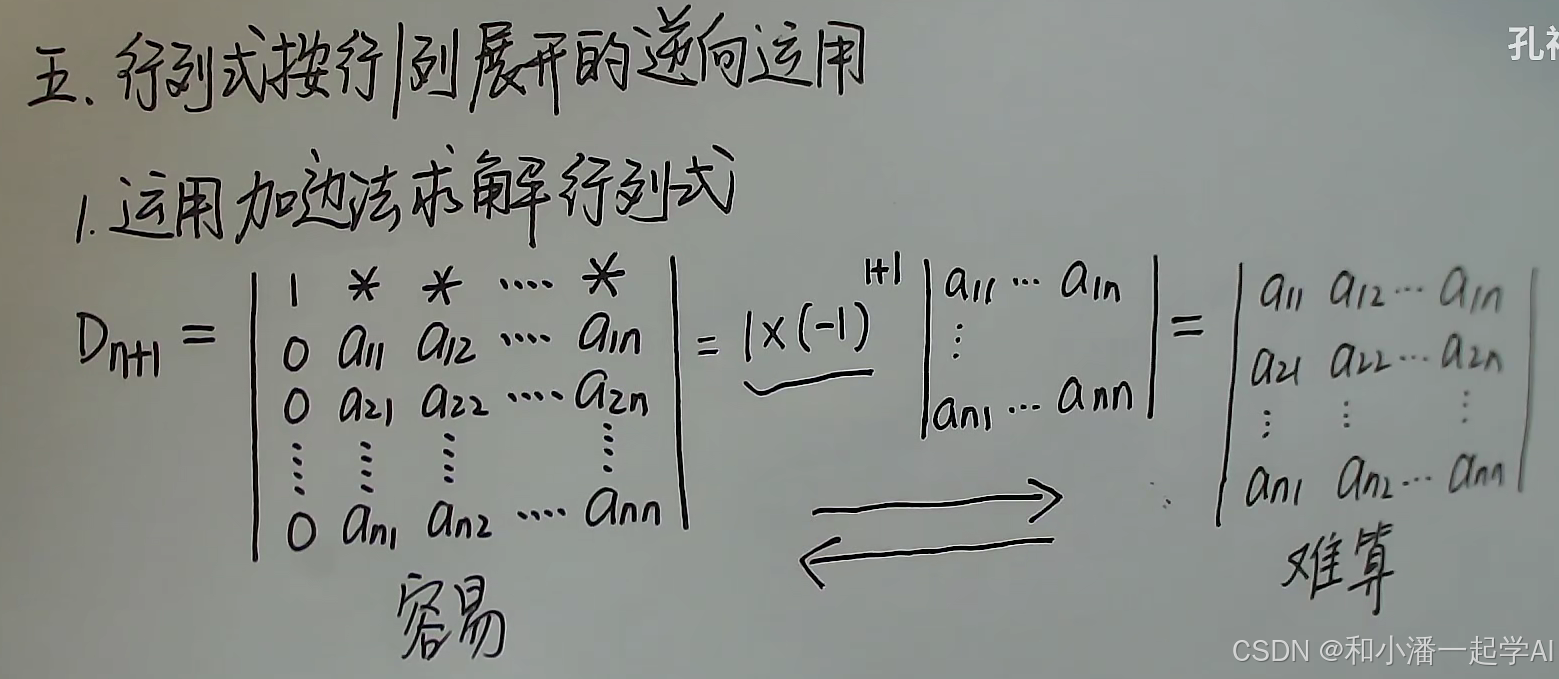 五、行列式按行|列展开的逆向运用
孔
1.运用加边法求解行列式
D_{n+1} = | 1 * * ···· * ; 0 a_{11} a_{12} ···· a_{1n} ; 0 a_{21} a_{22} ···· a_{2n} ; ⋮ ⋮ ⋮ ⋮ ; 0 a_{n1} a_{n2} ···· a_{nn} | = 1×(-1)^{1+1} | a_{11} ··· a_{1n} ; ⋮ ; a_{n1} ··· a_{nn} | = | a_{11} a_{12} ··· a_{1n} ; a_{21} a_{22} ··· a_{2n} ; ⋮ ⋮ ⋮ ; a_{n1} a_{n2} ··· a_{nn} |
容易
难算
CSDN @和小潘一起学AI